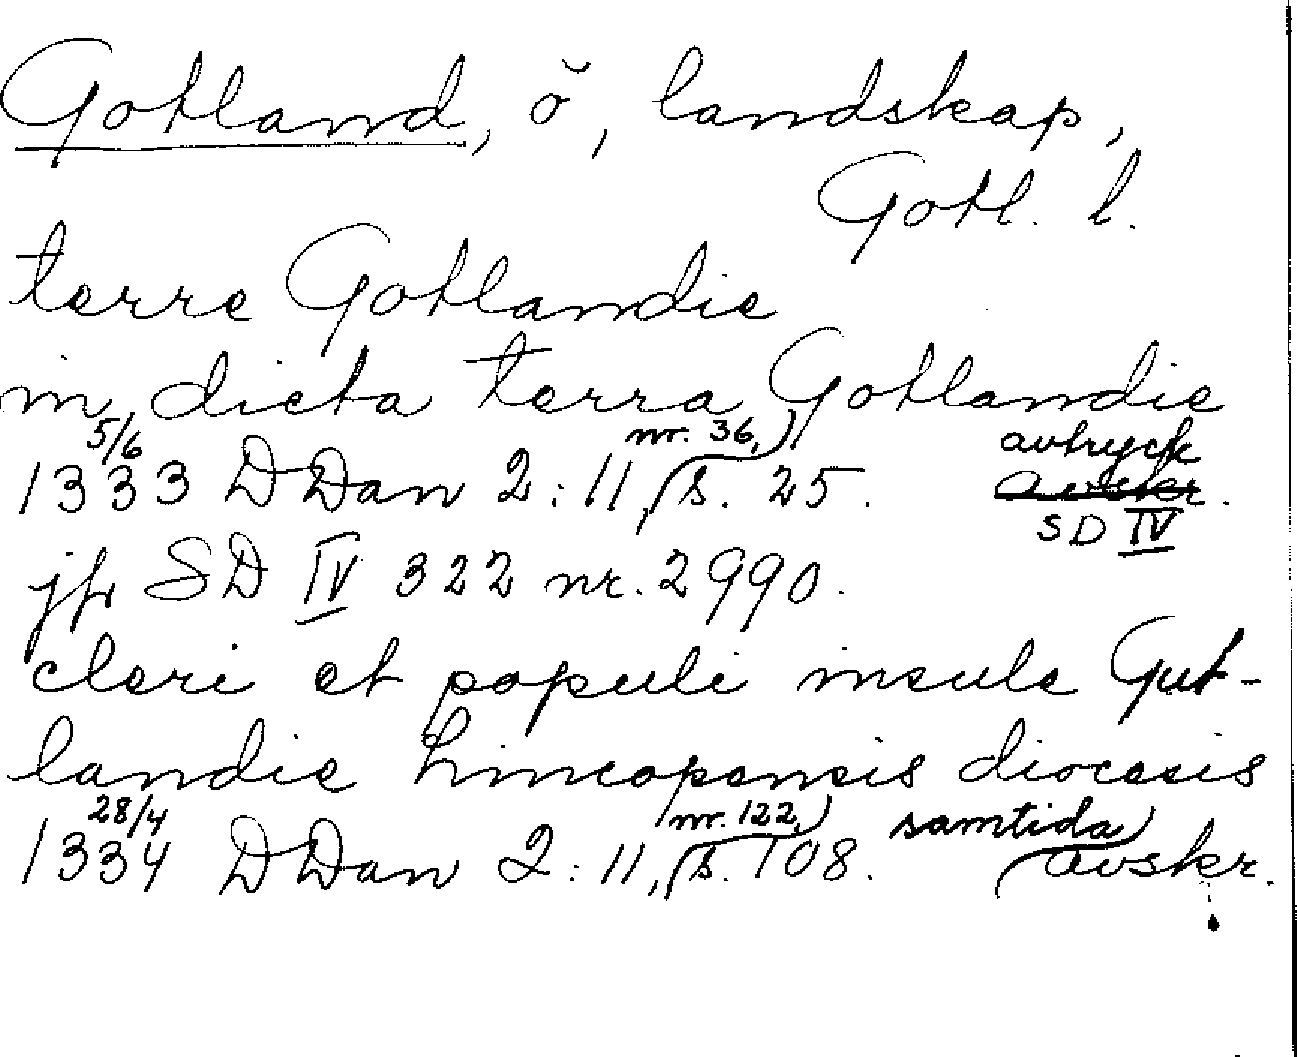 Gotland, ö, landskap,
Gotl. l.
terre Gotlandie
in dicta terra Gotlandie
1333 5/6 DDan 2:11, nr. 36, s. 25. avtryck
avskr.
SD IV
jfr SD IV 322 nr. 2990.
cleri et populi insule Gut-
landie Lincopensis diocesis
1334 28/4 DDan 2:11, nr. 122, s. 108. samtida avskr.